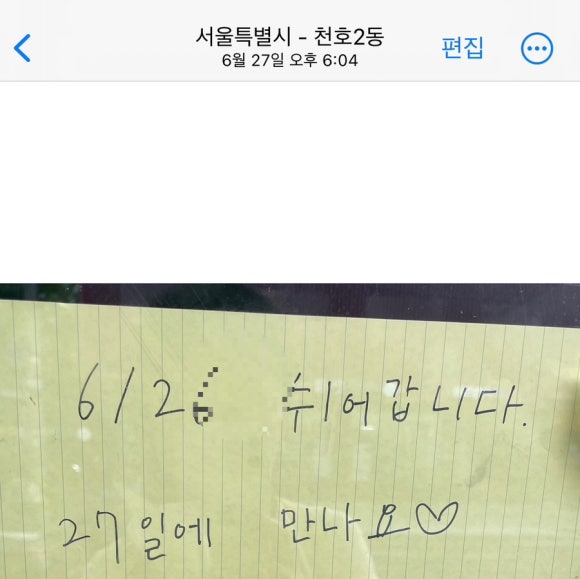 서울특별시 - 천호2동
편집
6월 27일 오후 6:04
6/26 쉬어갑니다.
27일에 만나요♡